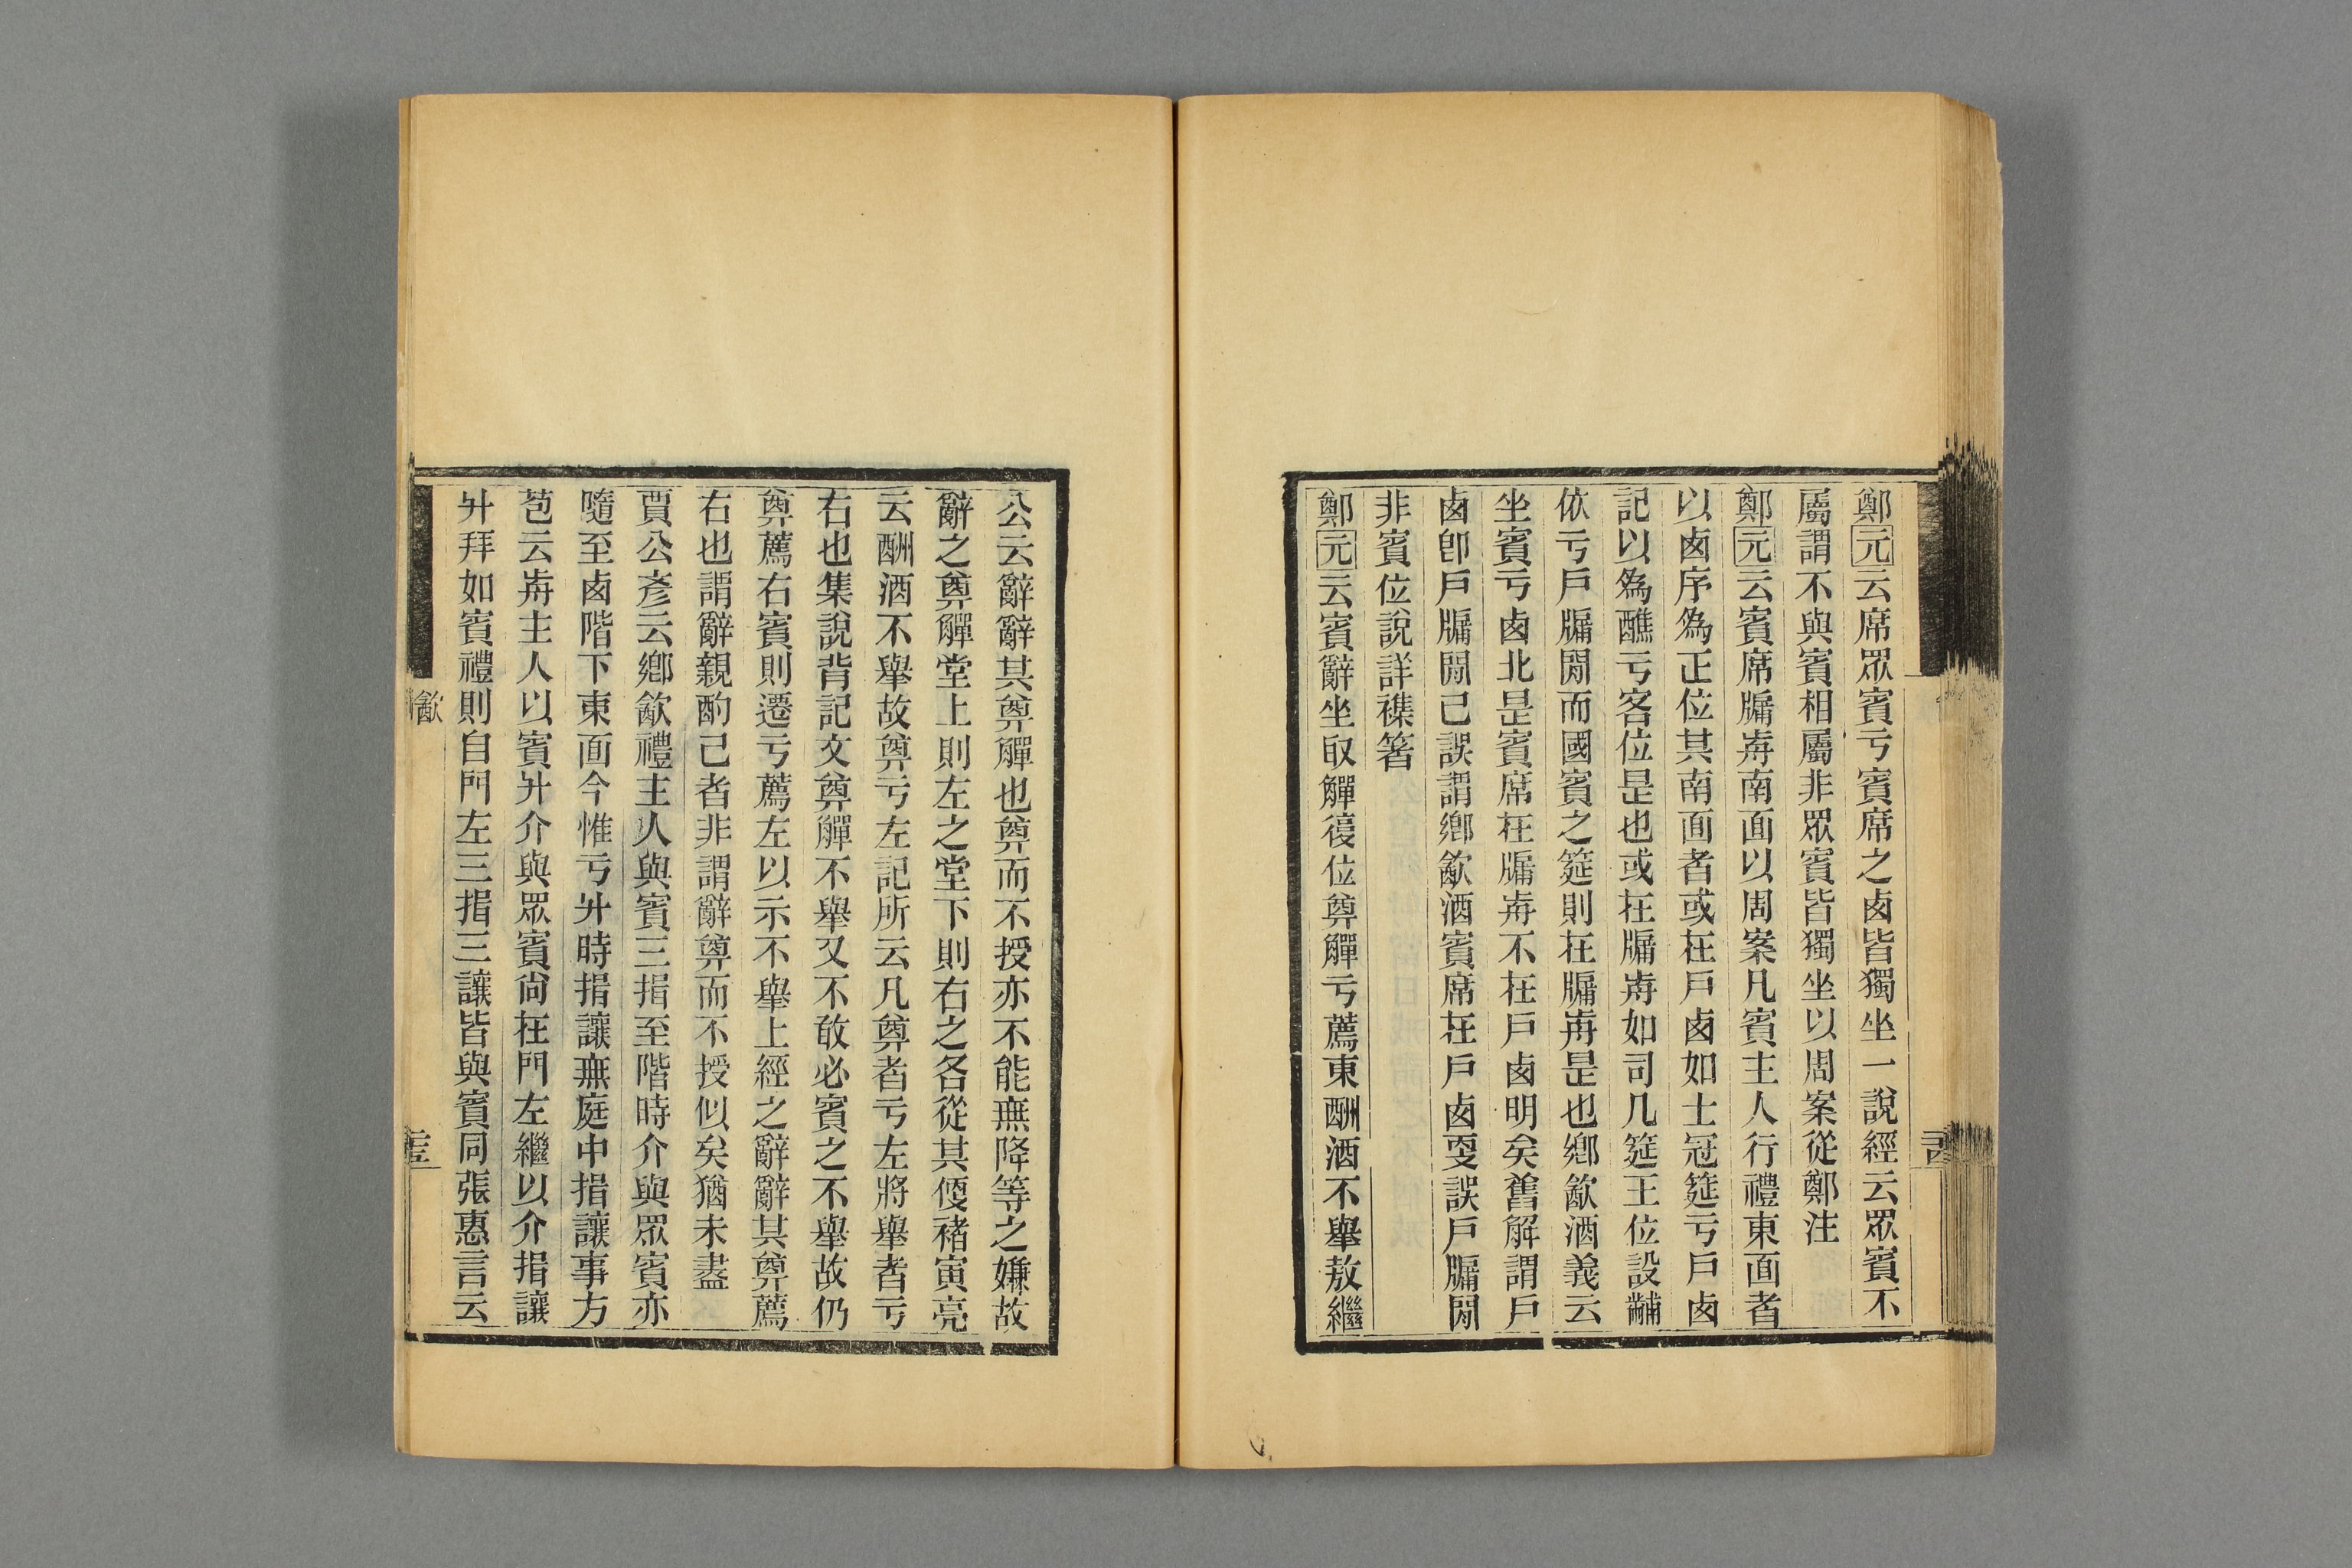 鄭元云席眾賓亏賓席之卤皆獨坐一說經云眾賓不
屬謂不與賓相屬非眾賓皆獨坐以周案從鄭注
鄭元云賓席牖歬南面以周案凡賓主人行禮東面者
以卤序為正位其南面者或在戶卤如士冠筵亏戶卤
記以為醮亏客位是也或在牖歬如司几筵王位設黼
依亏戶牖閒而國賓之筵則在牖歬是也鄉㱃酒義云
坐賓亏卤北是賓席在牖歬不在戶卤明矣舊解謂戶
卤卽戶牖閒已誤謂鄉㱃酒賓席在戶卤㪅誤戶牖閒
非賓位說詳襍箸
鄭元云賓辭坐取觶復位奠觶亏薦東酬酒不舉敖繼
公云辭辭其奠觶也奠而不授亦不能無降等之嫌故
辭之奠觶堂上則左之堂下則右之各從其便褚寅亮
云酬酒不舉故奠亏左記所云凡奠者亏左將舉者亏
右也集說背記文奠觶不舉又不敢必賓之不舉故仍
奠薦右賓則遷亏薦左以示不舉上經之辭辭其奠薦
右也謂辭親酌己者非謂辭奠而不授似矣猶未盡
賈公彥云鄉㱃禮主人與賓三揖至階時介與眾賓亦
隨至卤階下東面今惟亏升時揖讓無庭中揖讓事方
苞云歬主人以賓升介與眾賓尙在門左繼以介揖讓
升拜如賓禮則自門左三揖三讓皆與賓同張惠言云
㱃